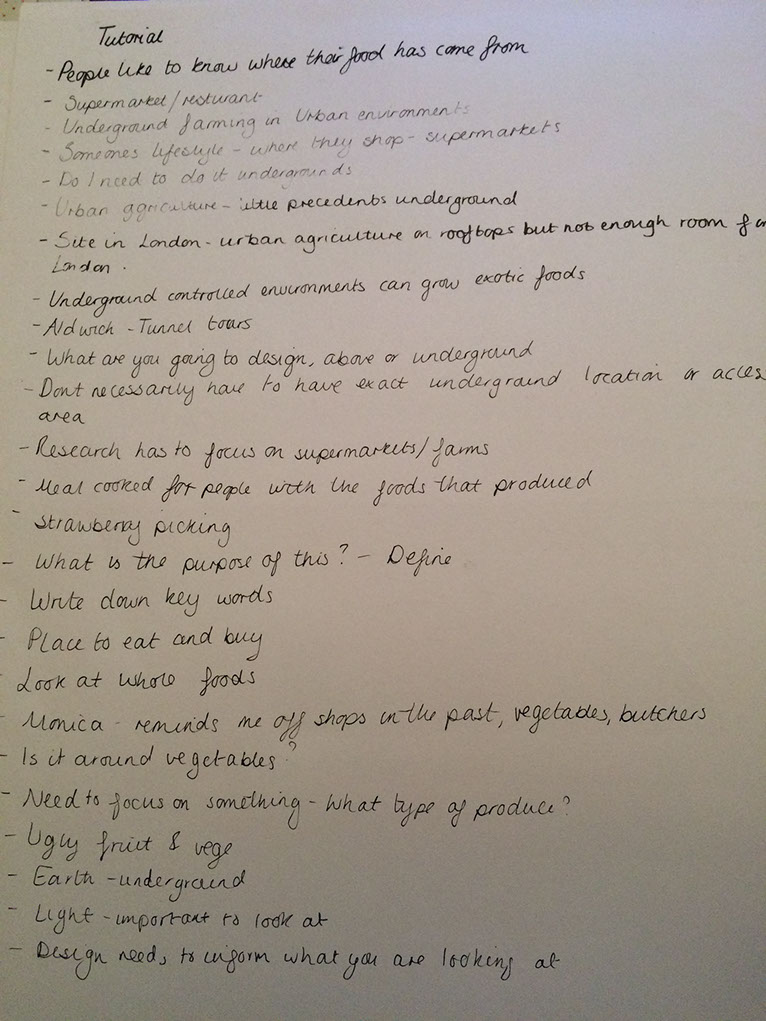 Tutorial
- People like to know where their food has come from
- Supermarket/resturant
- Underground farming in Urban environments
- Someones lifestyle - where they shop - supermarkets
- Do I need to do it undergrounds
- Urban agriculture - little precedents underground
- Site in London - urban agriculture on rooftops but not enough room
London.
- Underground controlled environments can grow exotic foods
- Aldwich - Tunnel tours
- What are you going to design, above or underground
- Dont necessarily have to have exact underground location or acces
area
- Research has to focus on supermarkets/farms
- Meal cooked for people with the foods that produced
- Strawberry picking
- What is the purpose of this? - Define
- Write down key words
- Place to eat and buy
- Look at whole foods
- Monica - reminds me off shops in the past, vegetables, butchers
- Is it around vegetables?
- Need to focus on something - what type of produce?
- Ugly fruit & vege
- Earth - underground
- Light - important to look at
- Design needs to inform what you are looking at